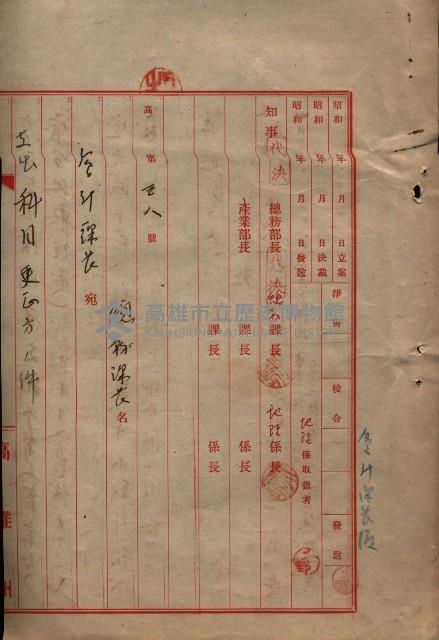 昭和 年 月 日立案
昭和 年 月 日決裁
昭和 年 月 日發送
淨書
校合
發送
知事代決
總務部長代決
總務課長
地理係長
地理係取扱者
產業部長
課長
係長
課長
係長
高 第 號
總務課長名
會計課長 宛
支出科目更正方ノ件
高雄州
高雄市立歷史博物館
KAOHSIUNG MUSEUM OF HISTORY